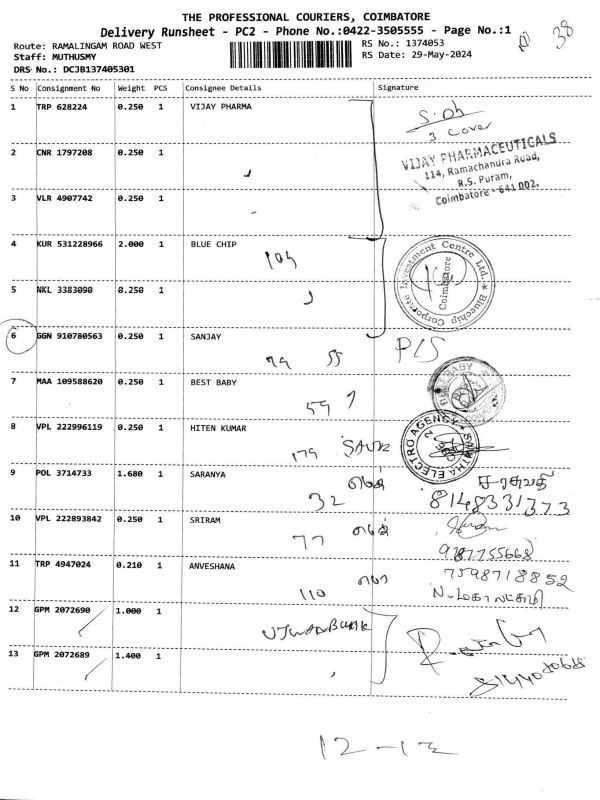 THE PROFESSIONAL COURIERS, COIMBATORE
Delivery Runsheet - PC2 - Phone No.:0422-3505555 - Page No.:1
38
Route: RAMALINGAM ROAD WEST
RS No.: 1374053
Staff: MUTHUSMY
RS Date: 29-May-2024
DRS No.: DCJB137405301
S No Consignment No Weight PCS Consignee Details Signature
1 TRP 628224 0.250 1 VIJAY PHARMA
3 cover
2 CNR 1797208 0.250 1
VIJAY PHARMACEUTICALS
114, Ramachandra Road,
R.S. Puram,
Coimbatore - 641 002.
3 VLR 4907742 0.250 1
4 KUR 531228966 2.000 1 BLUE CHIP
Bluechip Corporate Investment Centre Ltd.
Coimbatore
5 NKL 3383090 0.250 1
6 GGN 910780563 0.250 1 SANJAY
79 55 P/S
7 MAA 109588620 0.250 1 BEST BABY
BEST BABY
59 7
8 VPL 222996119 0.250 1 HITEN KUMAR
AGENCY
179
9 POL 3714733 1.680 1 SARANYA
சரசுவதி
32 8148331373
10 VPL 222893842 0.250 1 SRIRAM
77
9787755668
11 TRP 4947024 0.210 1 ANVESHANA
7598718852
110
12 GPM 2072690 1.000 1
13 GPM 2072689 1.400 1